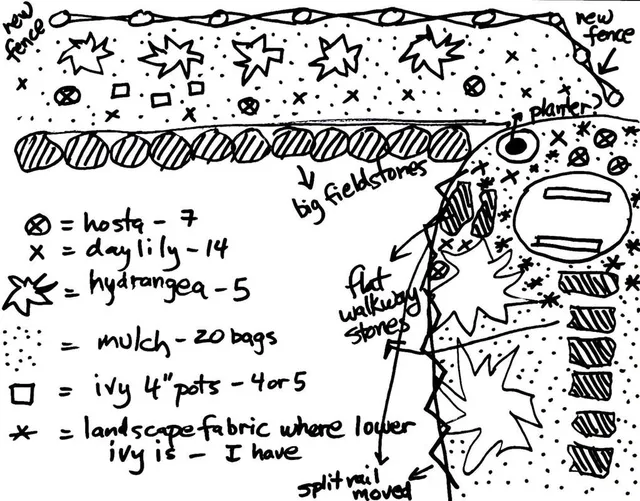 new fence
new fence
planter
big fieldstones
flat
walkway
stones
= hosta - 7
= daylily - 14
= hydrangea - 5
= mulch - 20 bags
= ivy 4" pots - 4 or 5
= landscape fabric where lower
ivy is - I have
split rail
moved